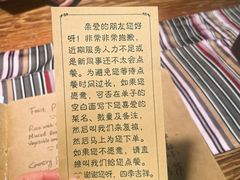 亲爱的朋友您好
呀！非常非常抱歉，
近期服务人力不足或
是新同事还不太会点
餐。为避免您等待点
餐时间过长，如果您
愿意，可否在单子的
空白面写下您喜爱的
菜名、数量及备注，
然后叫我们来复核，
然后马上为您下单。
如果您不愿意，请直
接叫我们给您点餐。
谢谢您呀，四季吉祥。